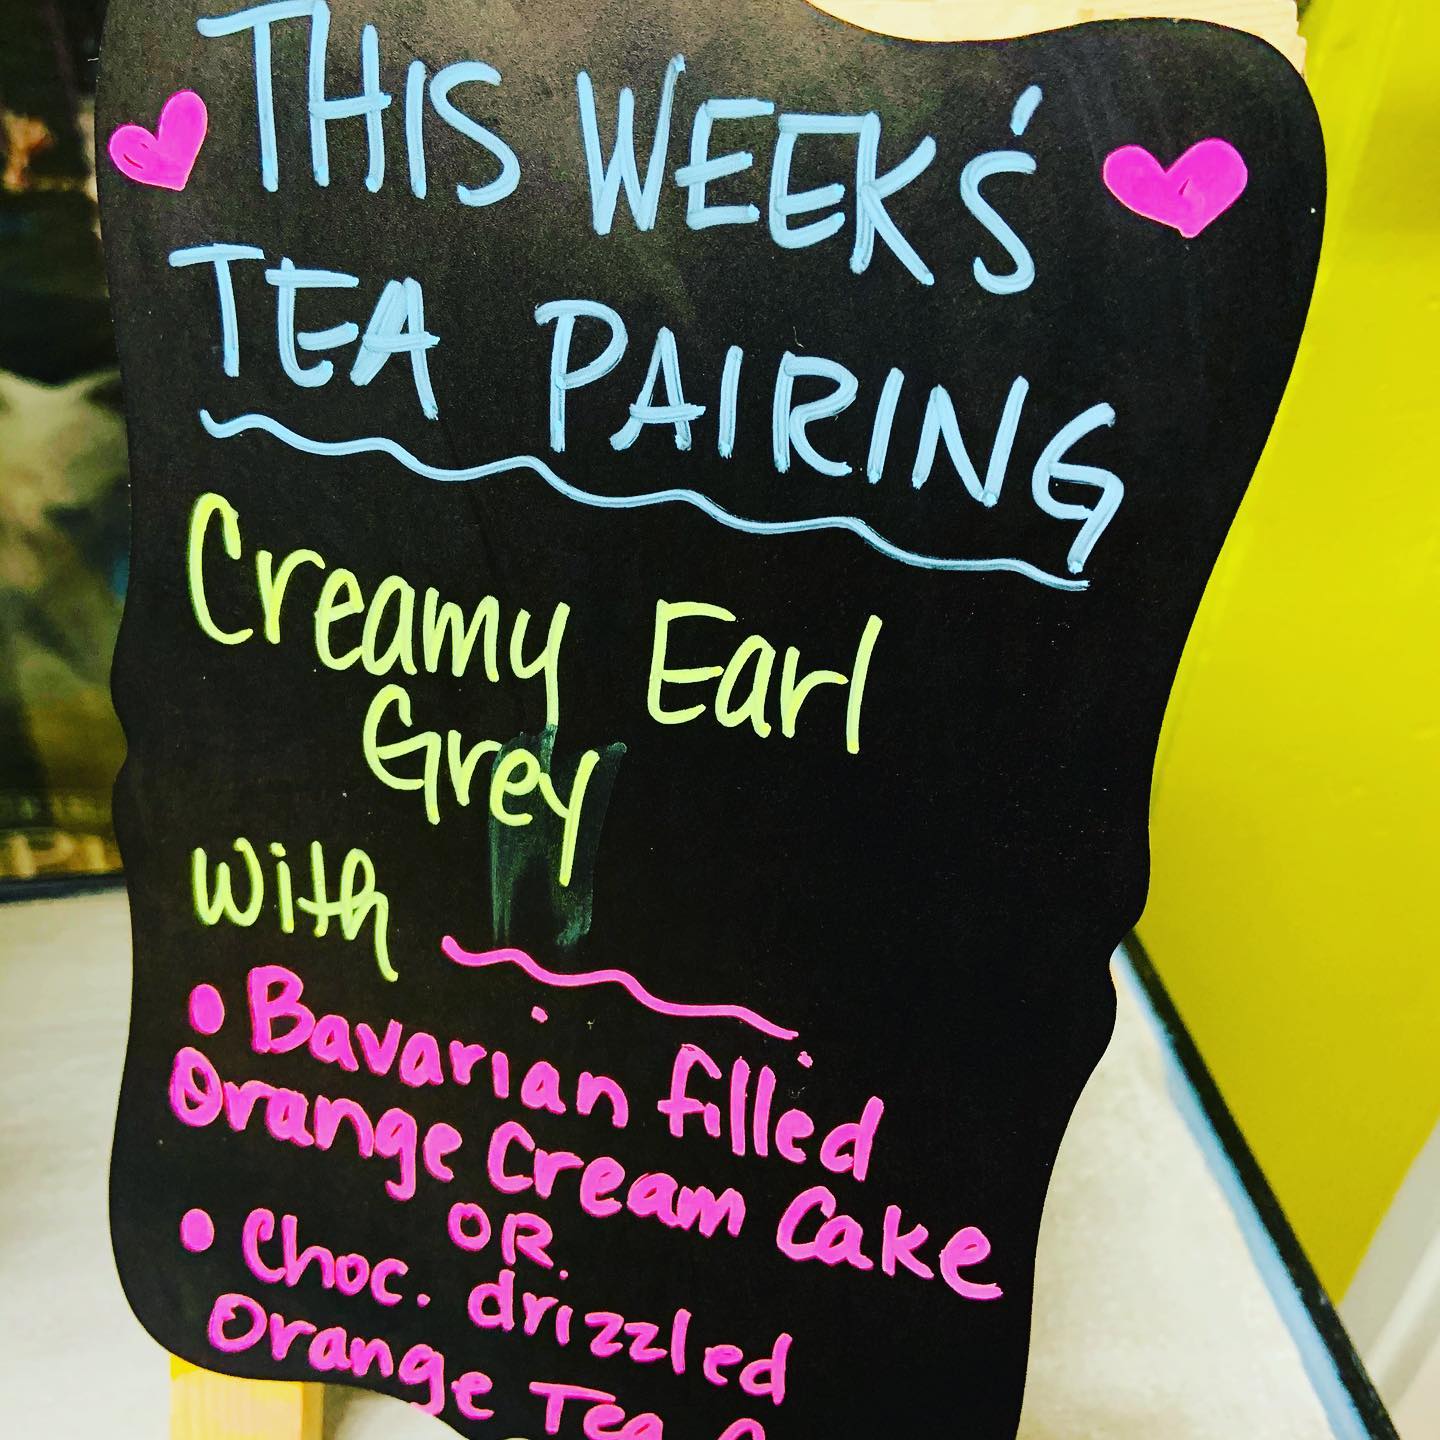 THIS WEEK'S
TEA PAIRING
Creamy Earl
Grey
with
• Bavarian filled
Orange Cream Cake
OR
• Choc. drizzled
Orange Tea